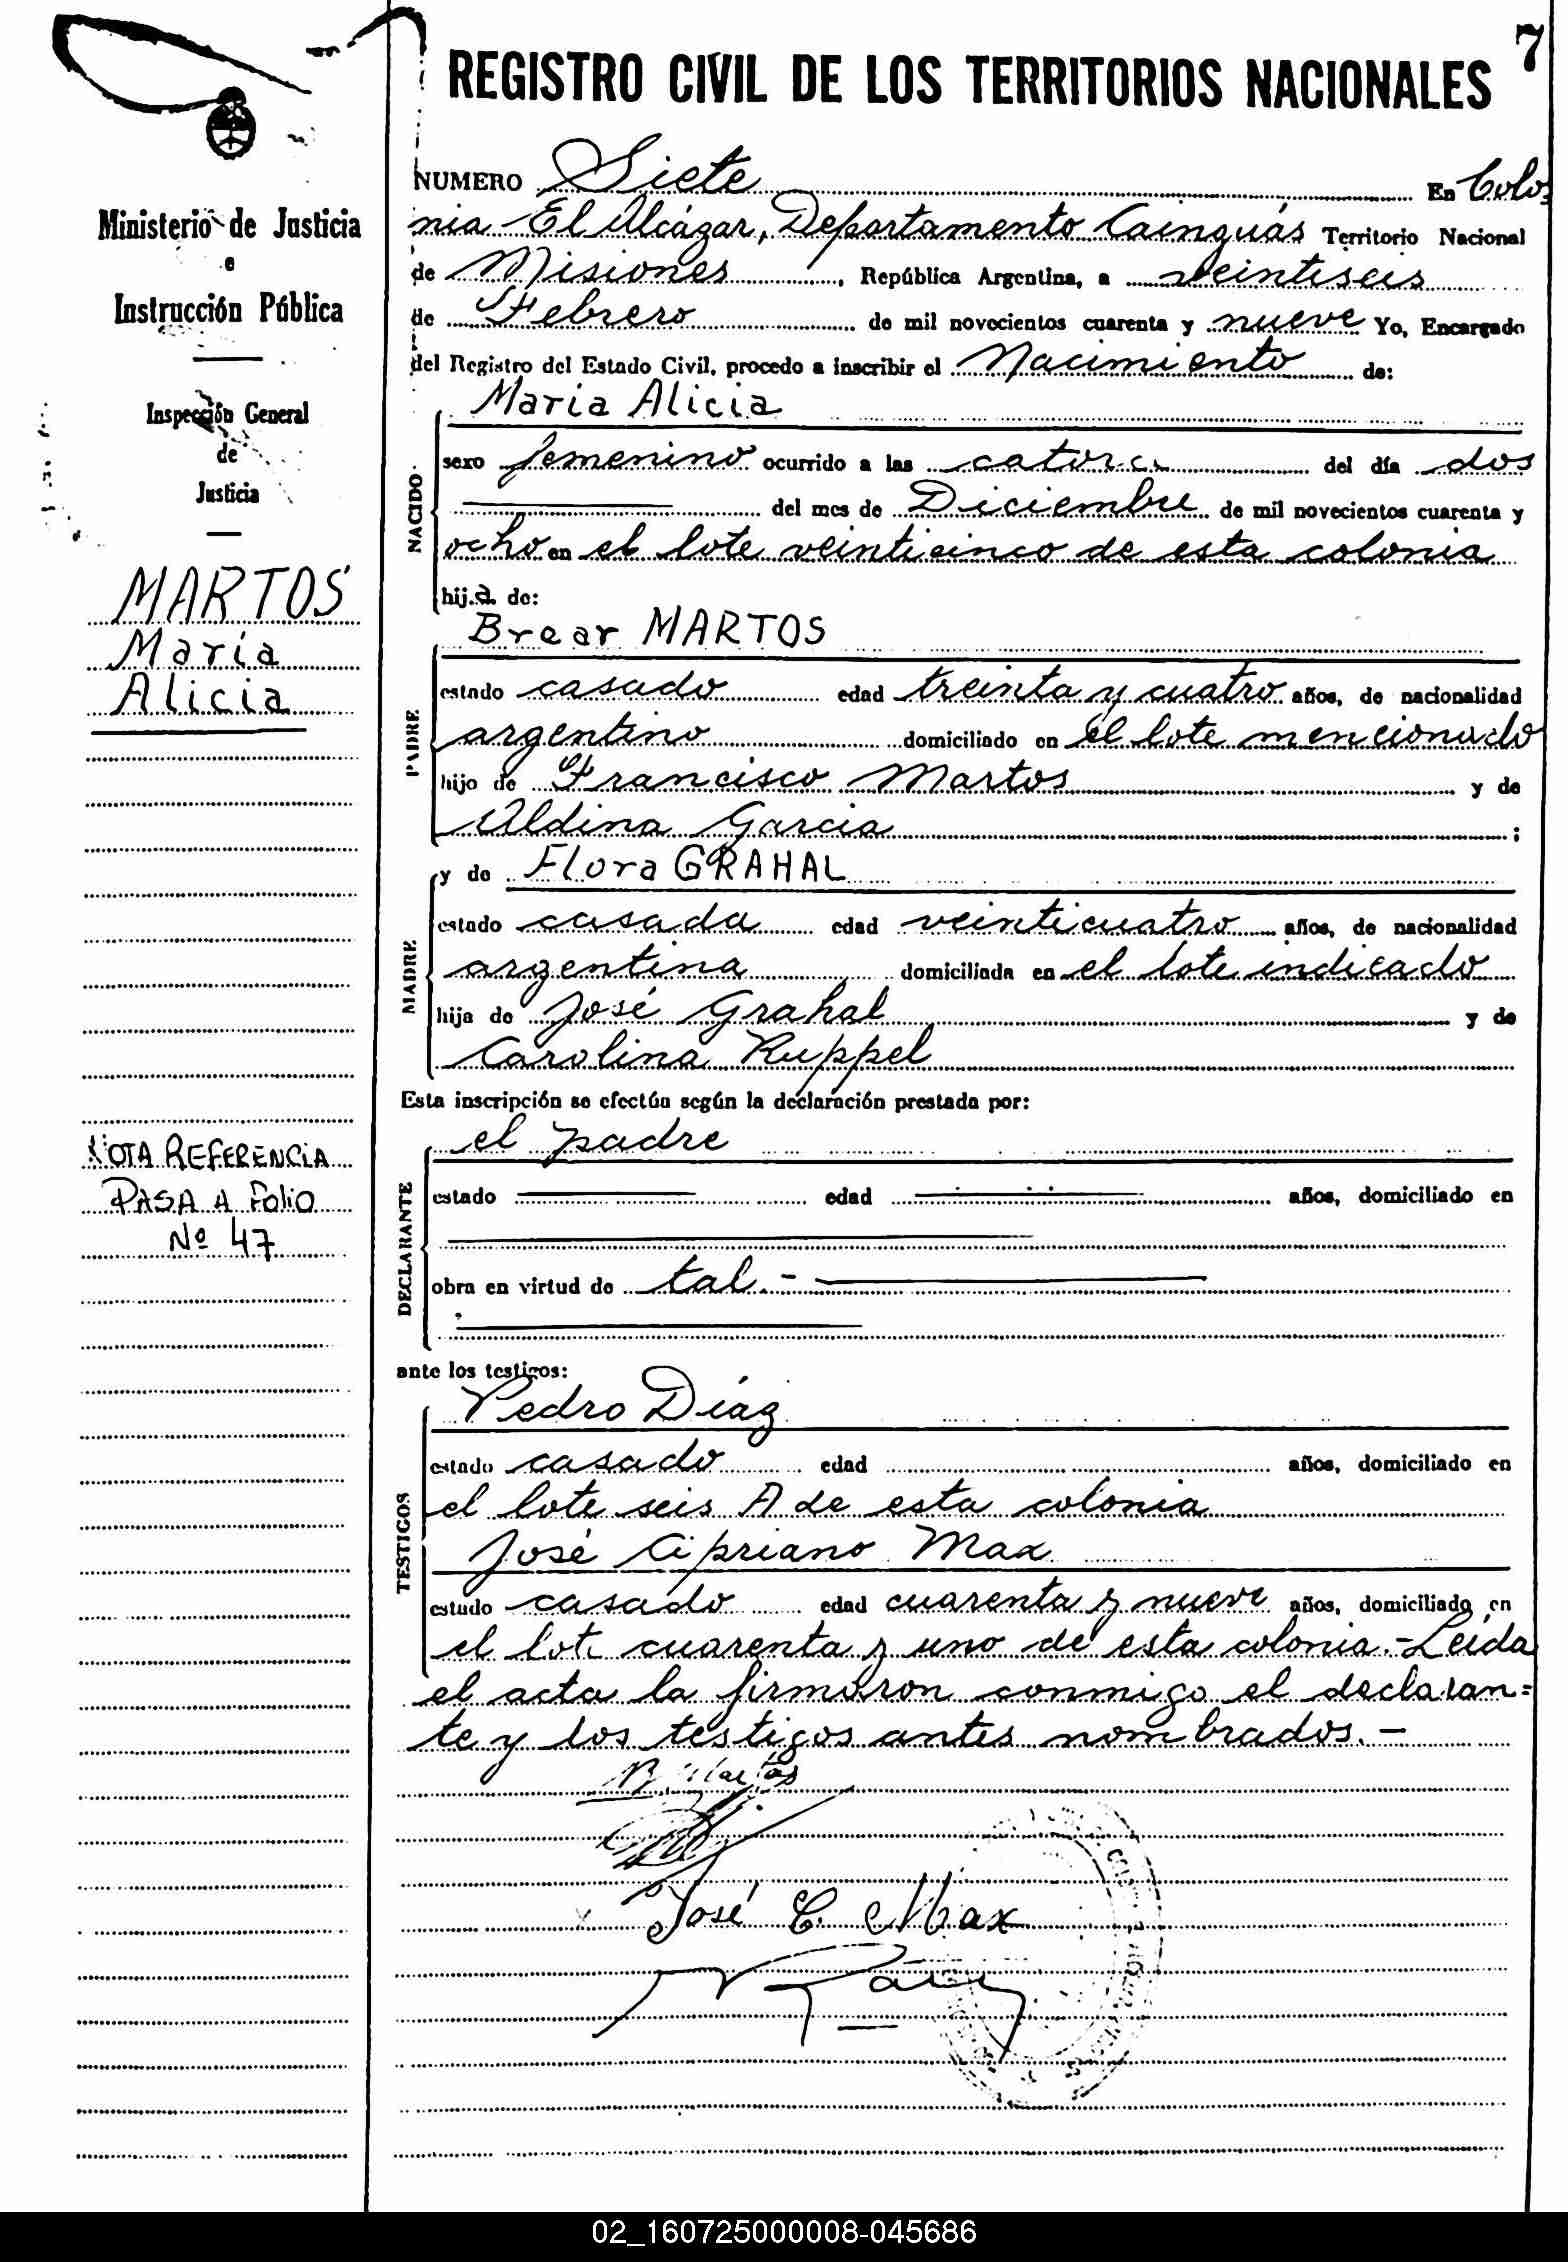 7
REGISTRO CIVIL DE LOS TERRITORIOS NACIONALES
Ministerio de Justicia
e
Instrucción Pública
Inspección General
de
Justicia
MARTOS
Maria
Alicia
NOTA REFERENCIA
PASA A Folio
Nº 47
NUMERO Siete En Colo-
nia El Alcázar, Departamento Cainguás Territorio Nacional
de Misiones, República Argentina, a veintiseis
de Febrero de mil novecientos cuarenta y nueve Yo, Encargado
del Registro del Estado Civil, procedo a inscribir el Nacimiento de:
NACIDO
Maria Alicia
sexo femenino ocurrido a las catorce del día dos
del mes de Diciembre de mil novecientos cuarenta y
ocho en el lote veinticinco de esta colonia
hija de:
PADRE
Brear MARTOS
estado casado edad treinta y cuatro años, de nacionalidad
argentino domiciliado en el lote mencionado
hijo de Francisco Martos y de
Aldina Garcia ;
MADRE
y de Flora GRAHAL
estado casada edad veinticuatro años, de nacionalidad
argentina domiciliada en el lote indicado
hija de José Grahal y de
Carolina Ruppel
Esta inscripción se efectúa según la declaración prestada por:
DECLARANTE
el padre
estado edad años, domiciliado en
obra en virtud de tal.-
ante los testigos:
TESTIGOS
Pedro Díaz
estado casado edad años, domiciliado en
el lote seis A de esta colonia
José Cipriano Max
estado casado edad cuarenta y nueve años, domiciliado en
el lote cuarenta y uno de esta colonia.- Leída
el acta la firmaron conmigo el declaran=
te y los testigos antes nombrados.-
B. Martos
José C. Max
02_160725000008-045686